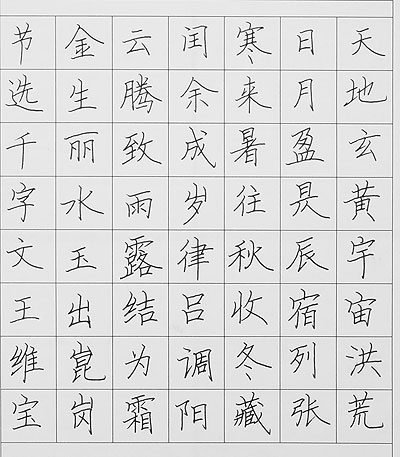 天地玄黄宇宙洪荒
日月盈昃辰宿列张
寒来暑往秋收冬藏
闰余成岁律吕调阳
云腾致雨露结为霜
金生丽水玉出崑岗
节选千字文王维宝